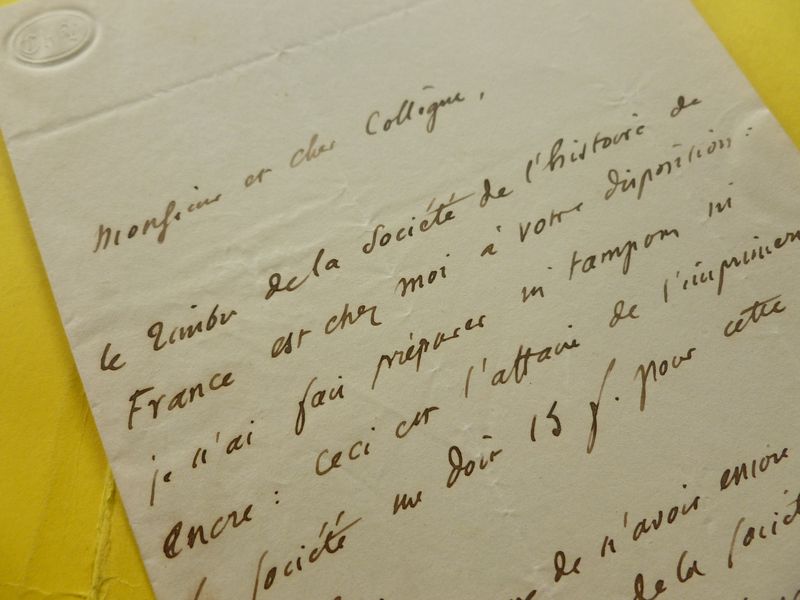 Monsieur et cher Collègue,
le timbre de la Société de l'histoire de
France est chez moi à votre disposition :
je n'ai fait préparer ni tampon ni
encre : ceci est l'affaire de l'imprimeur
Société me doit 15 f. pour cette
de n'avoir encore
de la Société